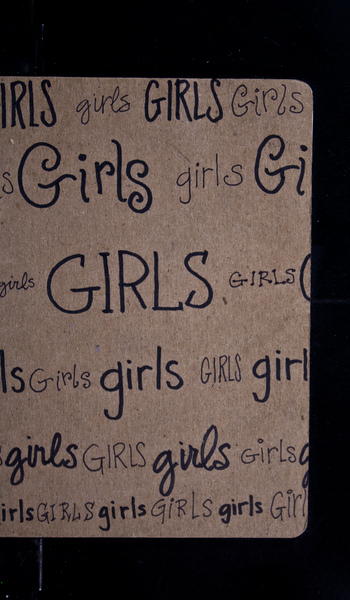 IRLS girls GIRLS Girls
s Girls girls Gi
girls GIRLS GIRLS G
ls Girls girls GIRLS girl
s girls GIRLS girls Girls g
irls GIRLS girls GiRLS girls Girl